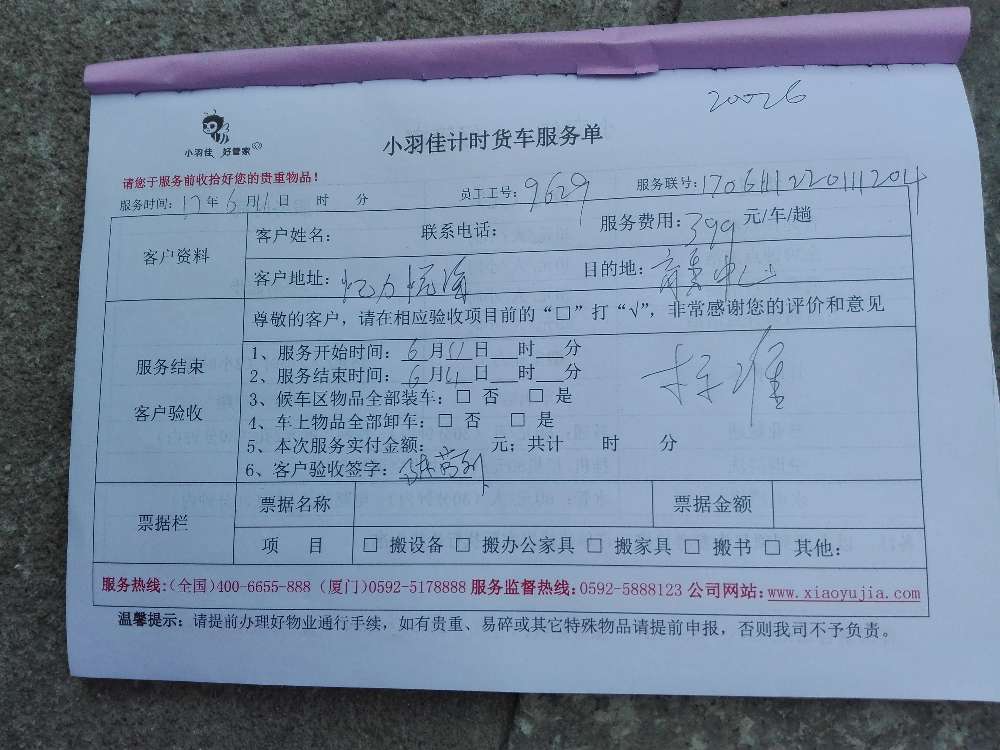 20026
小羽佳 好管家
小羽佳计时货车服务单
请您于服务前收拾好您的贵重物品！
服务时间：17年6月11日 时 分 员工工号：9629 服务联号：170611122011204
客户资料
客户姓名： 联系电话： 服务费用：399元/车/趟
客户地址： 目的地：
服务结束
客户验收
尊敬的客户，请在相应验收项目前的“□”打“√”，非常感谢您的评价和意见
1、服务开始时间：6月11日 时 分
2、服务结束时间：6月11日 时 分
标准
3、候车区物品全部装车：□ 否 □ 是
4、车上物品全部卸车：□ 否 □ 是
5、本次服务实付金额： 元；共计 时 分
6、客户验收签字：
票据栏
票据名称 票据金额
项 目 □ 搬设备 □ 搬办公家具 □ 搬家具 □ 搬书 □ 其他：
服务热线：（全国）400-6655-888（厦门）0592-5178888 服务监督热线：0592-5888123 公司网站：www.xiaoyujia.com
温馨提示：请提前办理好物业通行手续，如有贵重、易碎或其它特殊物品请提前申报，否则我司不予负责。